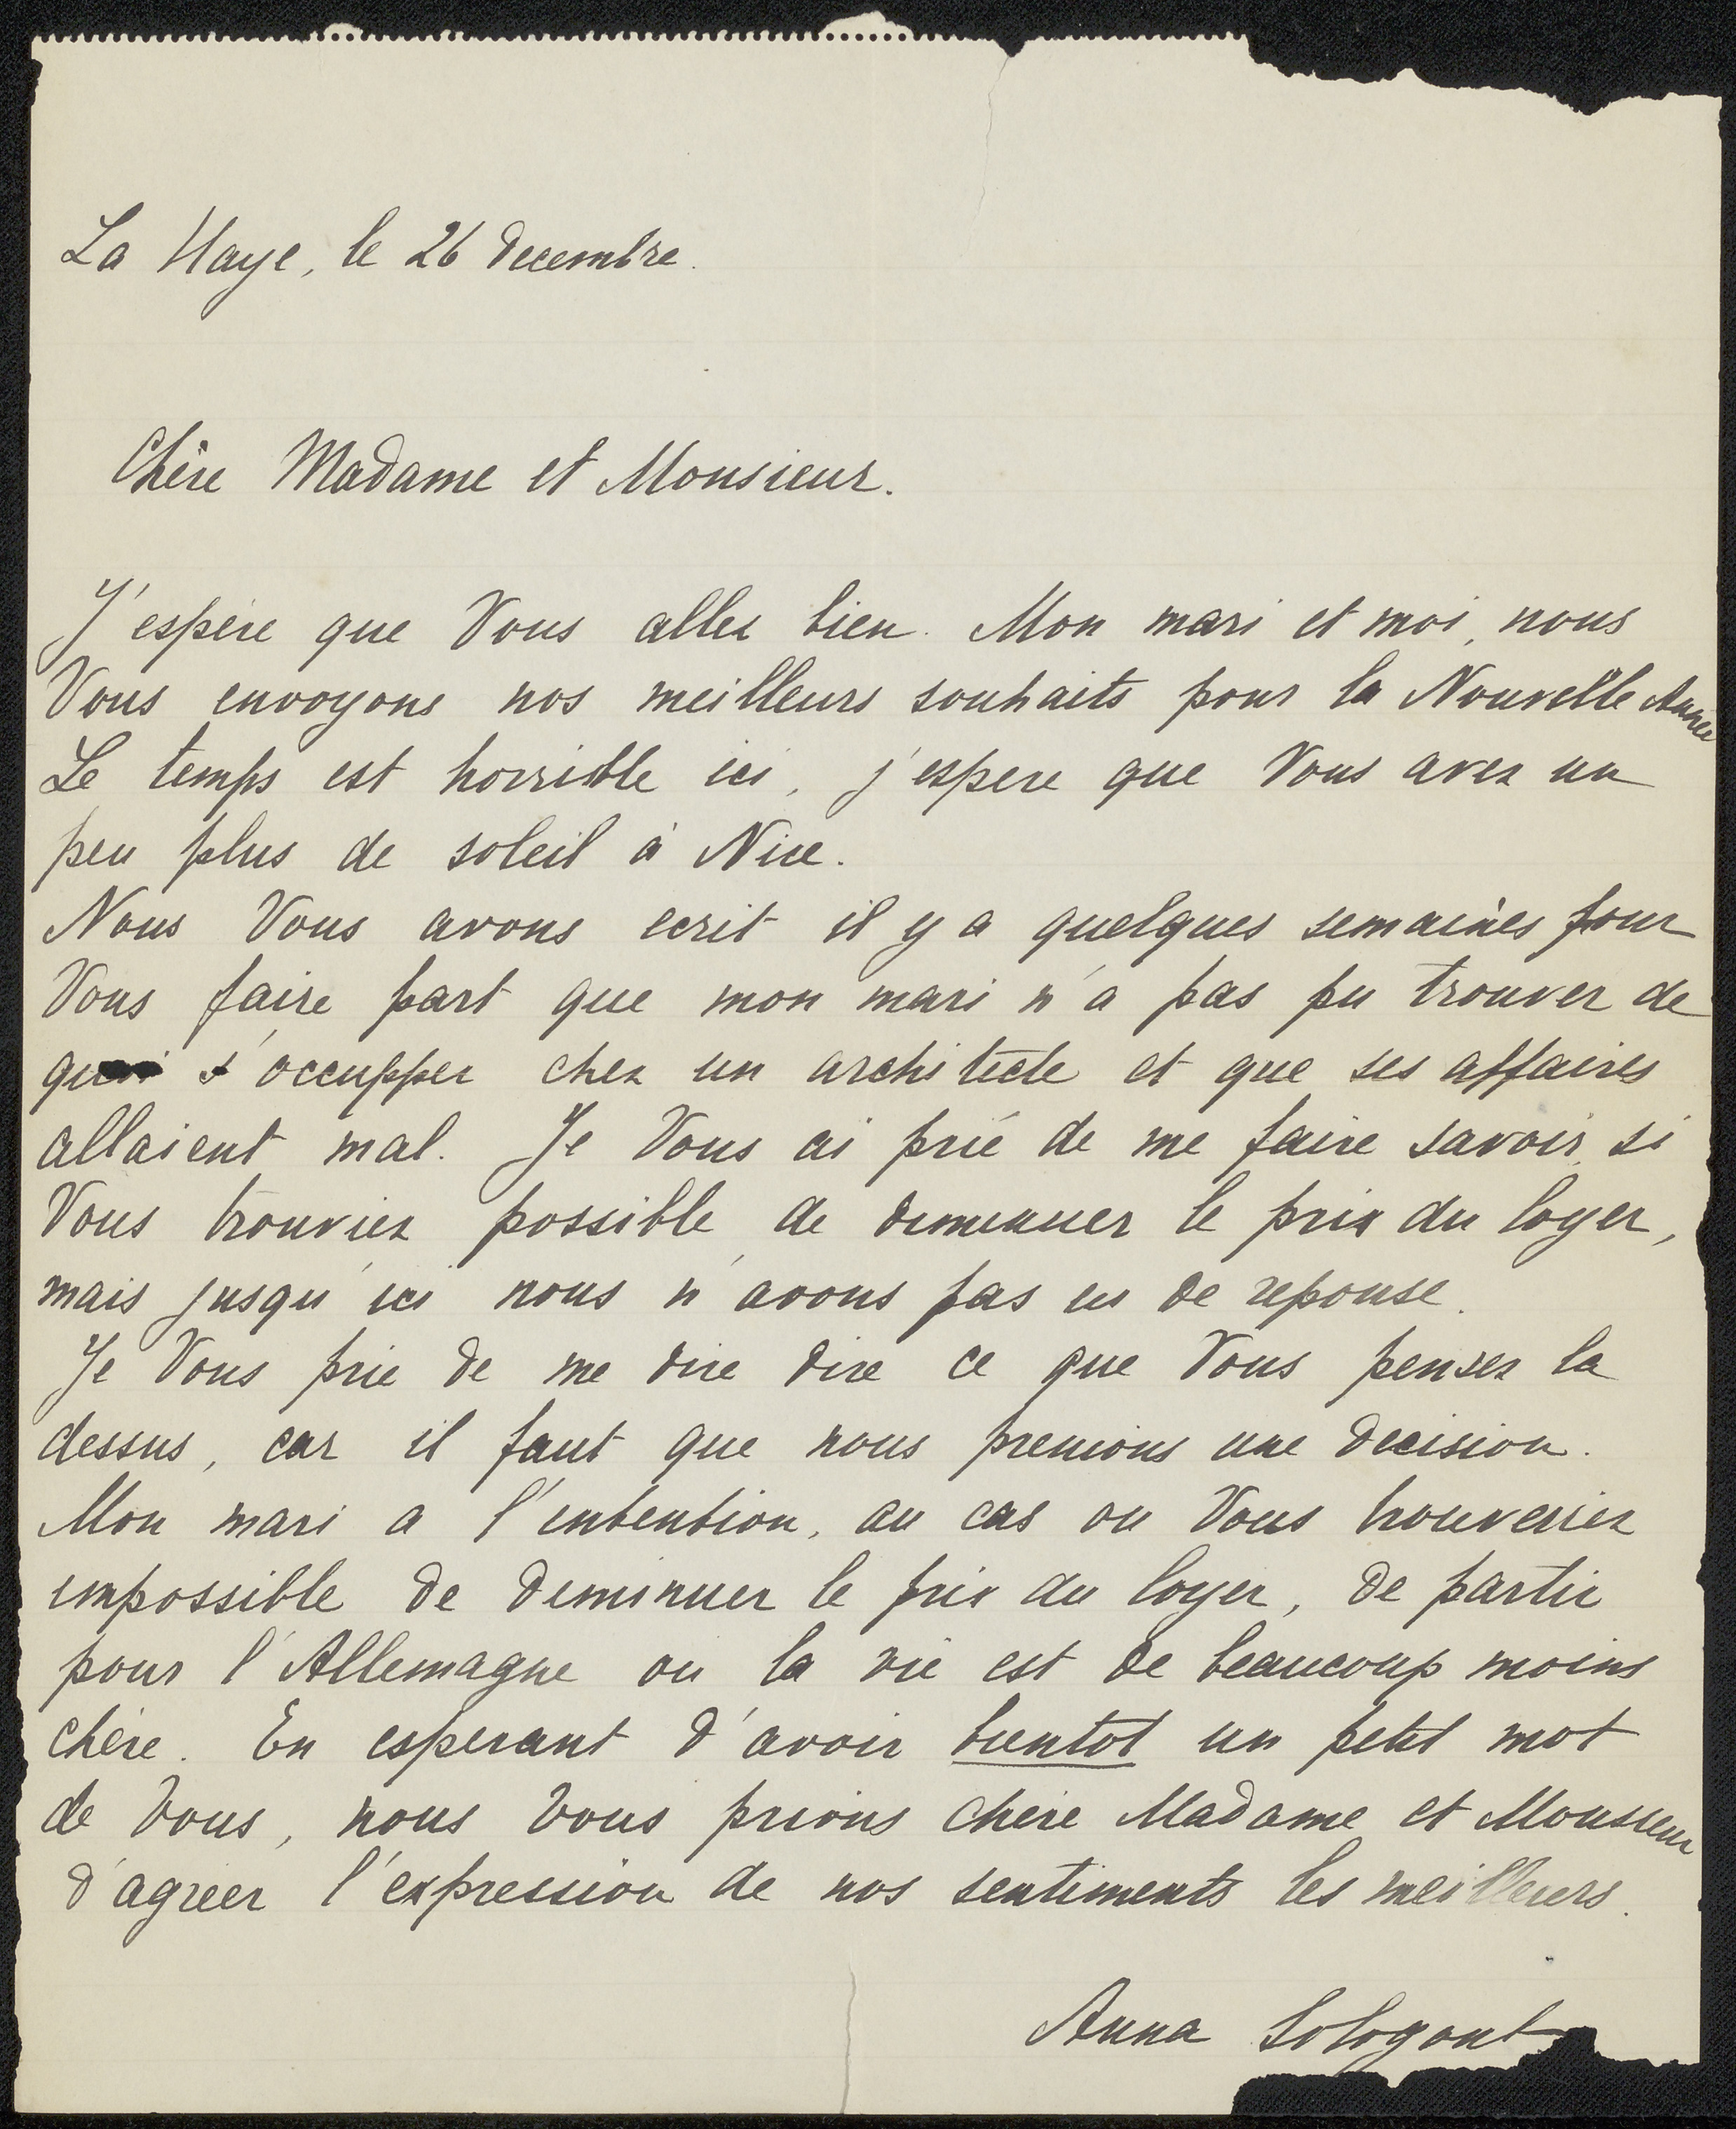 La Haye, le 26 decembre.
Chère Madame et Monsieur.
J'espère que Vous allez bien. Mon mari et moi, nous
Vous envoyons nos meilleurs souhaits pour la Nouvelle Annee
Le temps est horrible ici, j'espere que Vous avez un
peu plus de soleil à Nice.
Nous Vous avons ecrit il y a quelques semaines pour
Vous faire part que mon mari n'a pas pu trouver de
quoi s'occupper chez un architecte et que ses affaires
allaient mal. Je Vous ai prié de me faire savoir, si
Vous trouviez possible de deminuer le prix du loyer,
mais jusqu'ici nous n'avons pas eu de reponse.
Je Vous prie de me dire dire ce que Vous pensez la
dessus, car il faut que nous prenions une decision.
Mon mari a l'entention, au cas ou Vous trouveriez
impossible de deminuer le prix du loyer, de partir
pour l'Allemagne ou la vie est de beaucoup moins
chère. En esperant d'avoir bientot un petit mot
de Vous, nous Vous prions chere Madame et Monsieur
d'agreer l'expression de nos sentiments les meilleurs.
Anna Sologoub